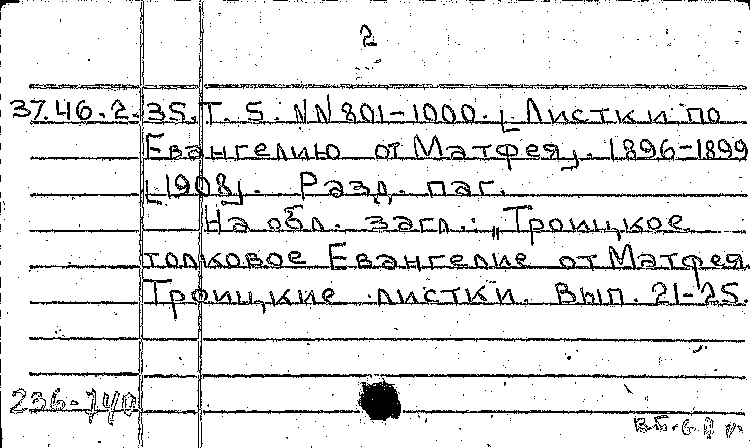 2
37.46.2.35. Т. 5. NN 801-1000. [Листки по
Евангелию от Матфея]. 1896-1899
[1908]. Разд. паг.
На обл. загл.: „Троицкое
толковое Евангелие от Матфея.
Троицкие листки. Вып. 21-25.
236-740